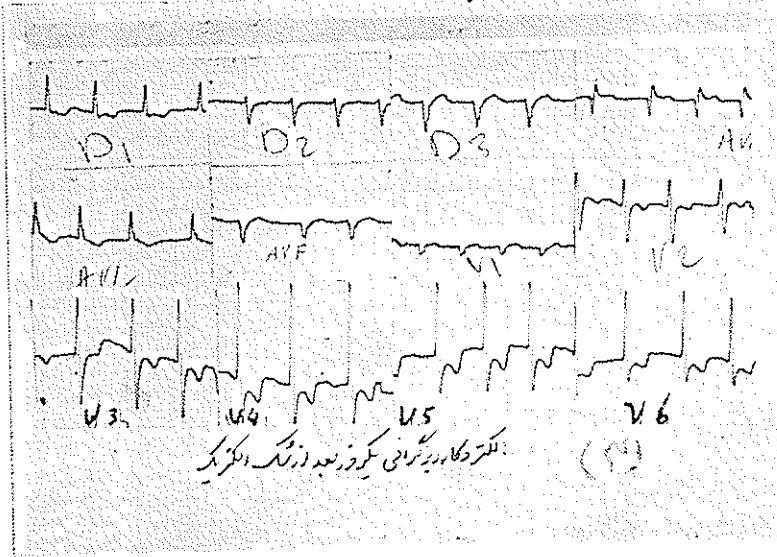 D1 D2 D3 AV
AVL AVF V1 V2
V3 V4 V5 V6
الکتروکاردیوگرافی یکروز بعد از شک الکتریک